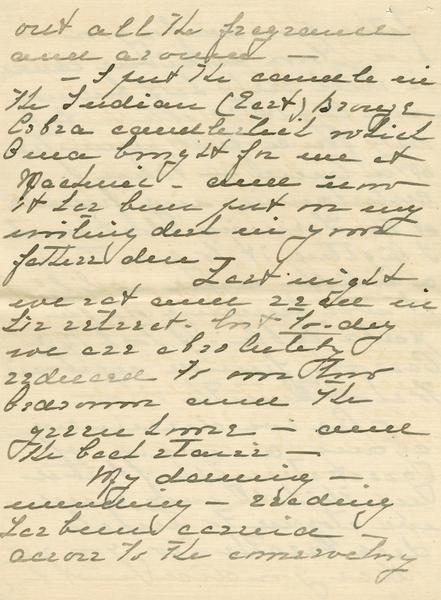 out all the fragrance
and aroma —
— I put the candle in
the Indian (East) Bronze
Cobra candlestick which
Oma bought for me at
— and now
it has been put on my
writing desk in your
fathers den
Last night
we sat and read in
his retreat. but to-day
we are absolutely
reduced to our two
bedrooms and the
green house — and
the back stairs —
My darning —
mending — reading
has been carried
across to the conservatory